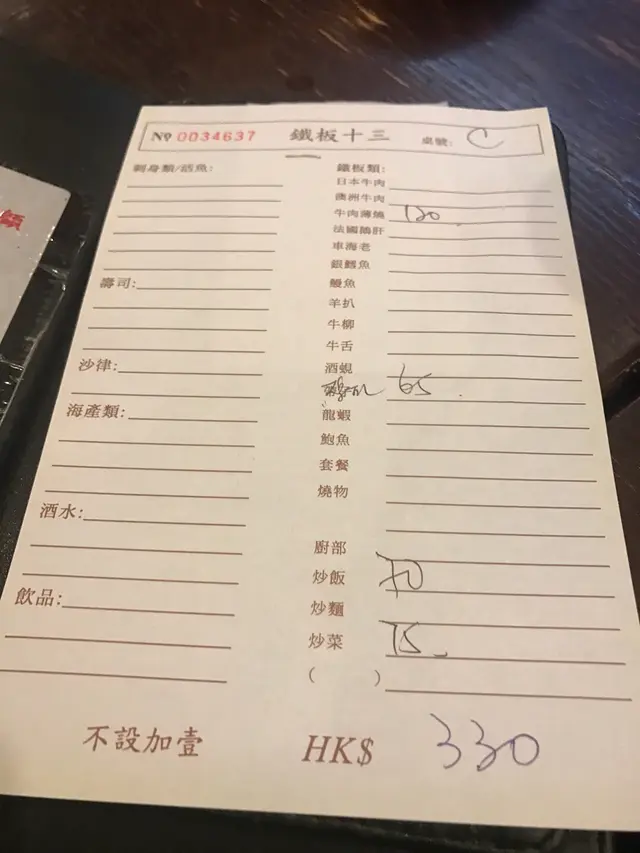 No 0034637 鐵板十三 桌號: C
刺身類/活魚:
壽司:
沙律:
海產類:
酒水:
飲品:
鐵板類:
日本牛肉
澳洲牛肉
牛肉薄燒 120
法國鵝肝
車海老
銀鱈魚
鰻魚
羊扒
牛柳
牛舌
酒蜆
65
龍蝦
鮑魚
套餐
燒物
廚部
炒飯 70
炒麵
炒菜 75
( )
不設加壹 HK$ 330